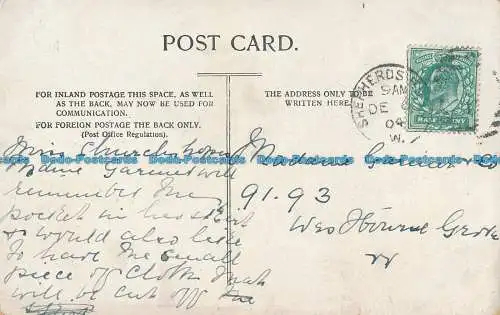 POST CARD.
FOR INLAND POSTAGE THIS SPACE, AS WELL
AS THE BACK, MAY NOW BE USED FOR
COMMUNICATION.
FOR FOREIGN POSTAGE THE BACK ONLY.
(Post Office Regulation).
THE ADDRESS ONLY TO BE
WRITTEN HERE.
SHEPHERDS
9 AM
DE
04
W.
HALFPENNY
Bodo-Postcards Bodo-Postcards Bodo-Postcards Bodo-Postcards Bodo-Postcards
Miss Church hopes
will
remember the
pocket in her skirt
& would also like
to have the small
piece of cloth that
will be cut off the
Madame
91.93
Westbourne Grove
W